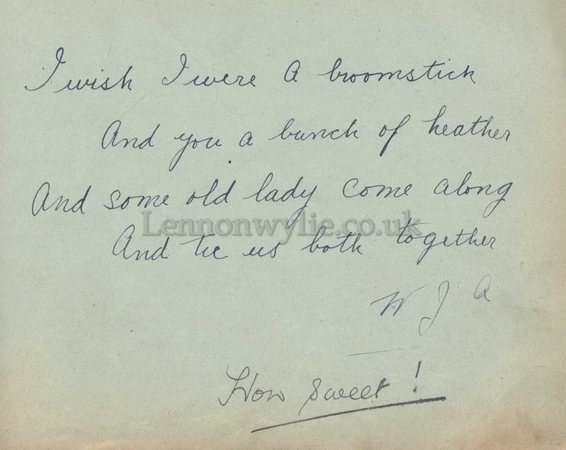 I wish I were A broomstick
And you a bunch of heather
And some old lady come along
Lennonwylie.co.uk
And tie us both together
W J A
How sweet!